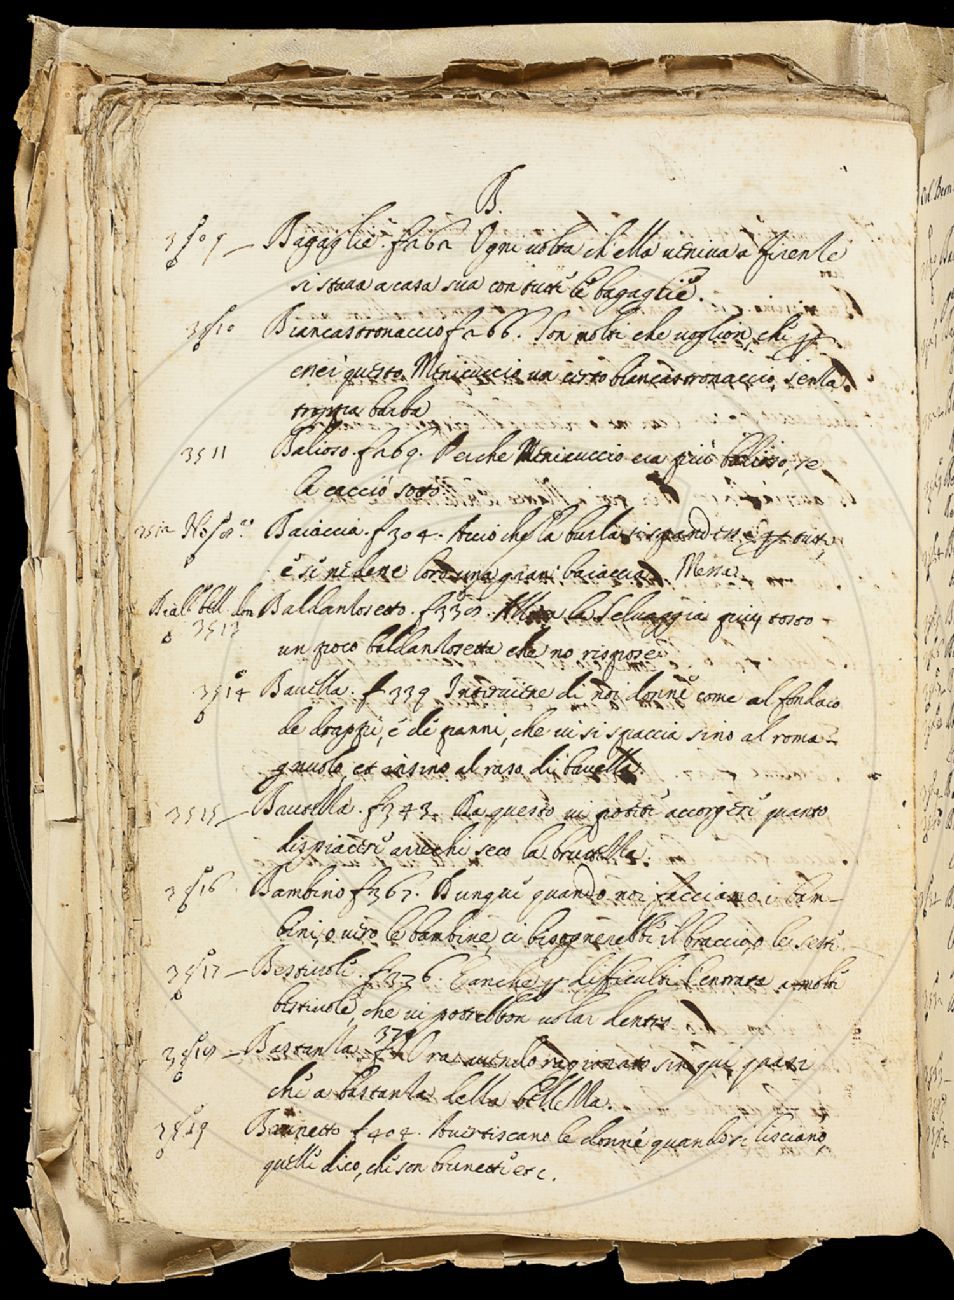 B.
3509 Bagaglie. f 262 Ogni uolta ch'ella ueniua a firenze
si staua a casa sua con tutte le bagaglie.
3510 Biancastronaccio f 266. Son molti che uoglion, che
questo Menicuccio un certo biancastronaccio, senza
troppa barba
3511 Balioso. f 269. Perche Menicuccio era piu se
la cacciò sotto
3512 Baiaccia. f 304. Acciò che la burla si spandesse per tutto,
e si ne dette loro una gran baiaccia. Messa
3513 Baldanzosetto. f 330. Allora la Seluaggia piu tosto
un poco baldanzosetta che no rispose
3514 Bauella. f 339 Interuiene di noi donne come al fondaco
de drappi, e di panni, che ui si spaccia sino al roma-
gnuolo, et insino al raso di bauella.
3515 Bruttezza. f 343. Da questo ui potete accorgere quanto
dispiacere arrechi seco la bruttezza.
3516 Bambino f 367. Dunque quando noi facciamo i bam-
bini, o uero le bambine, ci bisognerebbe il braccio, o le seste
3517 Bestiuole. f 376. E anche per difficultar l'entrata a molte
bestiuole, che ui potrebbon uolar dentro
3518 Bastanza 379 f Ora auendo ragionato sin qui quasi
che a bastanza della bellezza.
3519 Brunetto f 404. Auertiscano le donne quando si lisciano
quelle dico, che son brunette etc.